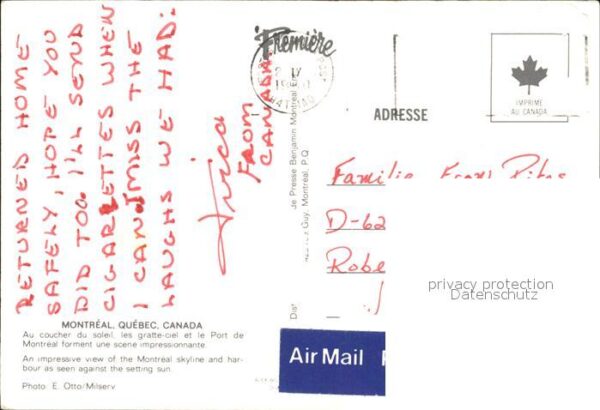 RETURNED HOME
SAFELY, HOPE YOU
DID TOO. I'LL SEND
CIGARLETTES WHEN
I CAN. MISS THE
LAUGHS WE HAD.
FROM
CANADA.
MONTRÉAL, QUÉBEC, CANADA
Au coucher du soleil, les gratte-ciel et le Port de
Montréal forment une scène impressionnante.
An impressive view of the Montréal skyline and har-
bour as seen against the setting sun.
Photo: E. Otto/Milserv
Première
IMPRIMÉ
AU CANADA
ADRESSE
Je Presse Benjamin Montréal
Guy, Montréal, P.Q.
Familie
D-62
Robe
privacy protection
Datenschutz
Air Mail